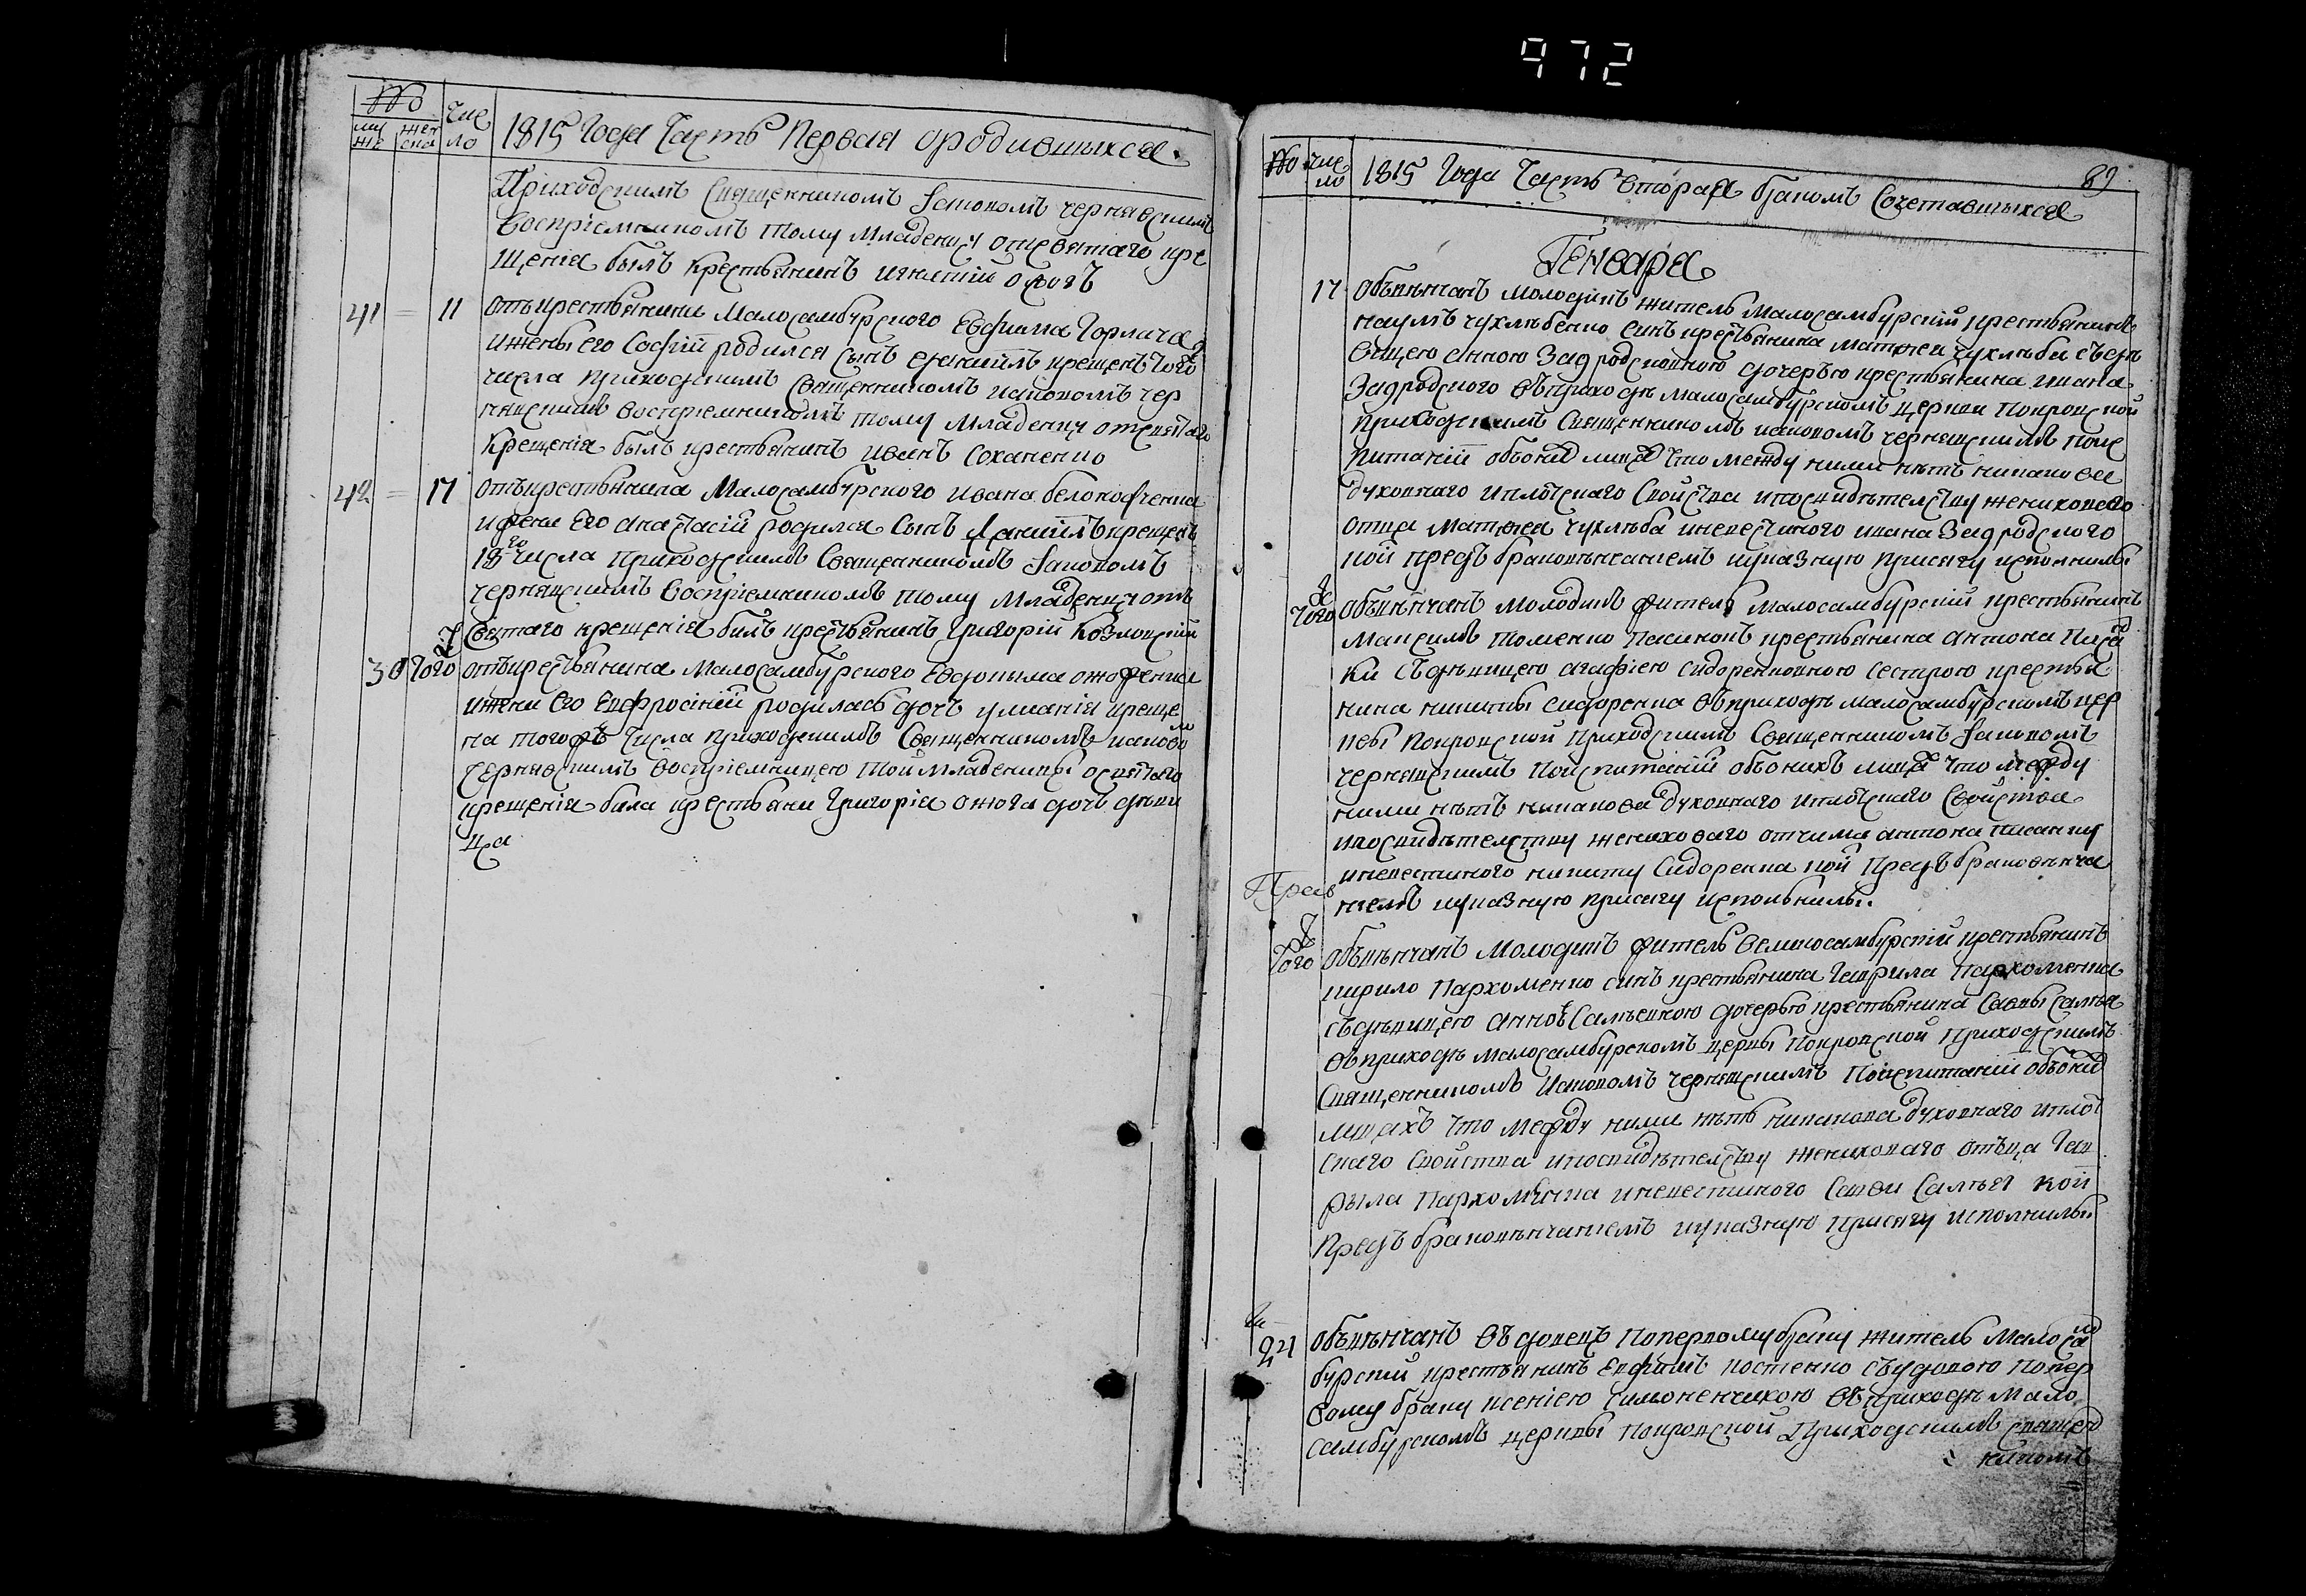 972
№ му жеска чис
жес ска ло 1815 Года Часть Первая ородившихся
Приходскимъ Священникомъ Іаковомъ чернявскимъ
Воспріемникомъ тому младенцу отсвятаго кре
щенія былъ крестьянинъ игнатій
41 11 отъкрестьянина Малосамбурского Евфима Горлача
ижены его Софіи родился сынъ Даніилъ крещенъ того
числа приходскимъ Священникомъ иаковомъ чер
нявскимъ воспріемникомъ тому младенцу отсвятаго
крещенія былъ крестьянинъ иванъ Соханенко
42 17 отъкрестьянина Малосамбурского ивана белоноженка
ижени его анастасіи родился сынъ Даніилъ крещенъ
18го числа приходскимъ Священникомъ Іаковомъ
чернявскимъ воспріемникомъ тому младенцу отъ
Святаго крещенія билъ крестьянинъ Григорій Козловскій
30 Того ж отъкрестьянина Малосамбурского Евдокима ожоженка
ижени его Евфросиніи родилась дочь улианія креще
на тогожъ числа приходскимъ Священникомъ иаково
мъ чернявскимъ воспріемницею той младеницы отсвятаго
крещенія била крестьяни Григоріа ожога дочь дѣви
ца
89
№ чис
ло 1815 Года Часть вторая бракомъ Сочетавшихся
Генваря
17 Обвѣнчанъ молодикъ житель малосамбурскій крестьянинъ
наумъ чухлѣбенко синъ крестьянина матвея чухлѣба съдѣ
вицею анною Задродсковною дочерью крестьянина ивана
Задродского въприходѣ малосамбурскомъ церкви Покровской
приходскимъ Священникомъ иаковомъ чернявскимъ поис
питаніи обьоихъ лицахъ что между ними нѣтъ никакова
духовнаго иплотскаго свойства ипосвидѣтелству жениховаго
отца матвея чухлѣба иневестиного ивана Задродского
кои предъ браковѣнчаніемъ иуказную присягу исполнилы
Того ж Обвѣнчанъ молодикъ житель малосамбурскій крестьянинъ
максимъ томенко пасинокъ крестьянина антона писан
ки съдѣвицею агафіею сидоренковною сестрою крестья
нина никиты сидоренка въприходѣ малосамбурскомъ цер
квы покровской приходскимъ Священникомъ Іаковомъ
чернявскимъ поиспитаніи обьоихъ лицахъ что между
ними нѣтъ никакова духовнаго иплотскаго свойства
ипосвидѣтелству жениховаго отчима антона писанки
иневестиного никиту Сидоренка кои предъ браковѣнча
ніемъ иуказную присягу исполнилы.
Того ж Обвѣнчанъ молодикъ житель великосамбурскій крестьянинъ
кирило Пархоменко синъ крестьянина Гаврила Пархоменка
съдѣвицею анною Самъевною дочерью крестьянина Саввы Самъя
въприходѣ малосамбурскомъ церквы Покровской приходскимъ
Священникомъ иаковомъ чернявскимъ поиспитаніи обьоихъ
лицахъ что между ними нѣтъ никакова духовнаго иплот
скаго свойства ипосвидѣтелству жениховаго отъца Гав
рыла Пархоменка иневестиного Саввы Самъя кои
предъ браковѣнчаніемъ иуказную присягу исполнилы
24 Обвѣнчанъ въдовецъ попервому браку житель малосам
бурскій крестьянинъ Евфимъ костенко съудовою попер
вому браку ксеніею Симоненчихою въприходѣ мало
самбурскомъ церквы покровской приходскимъ священ
никомъ